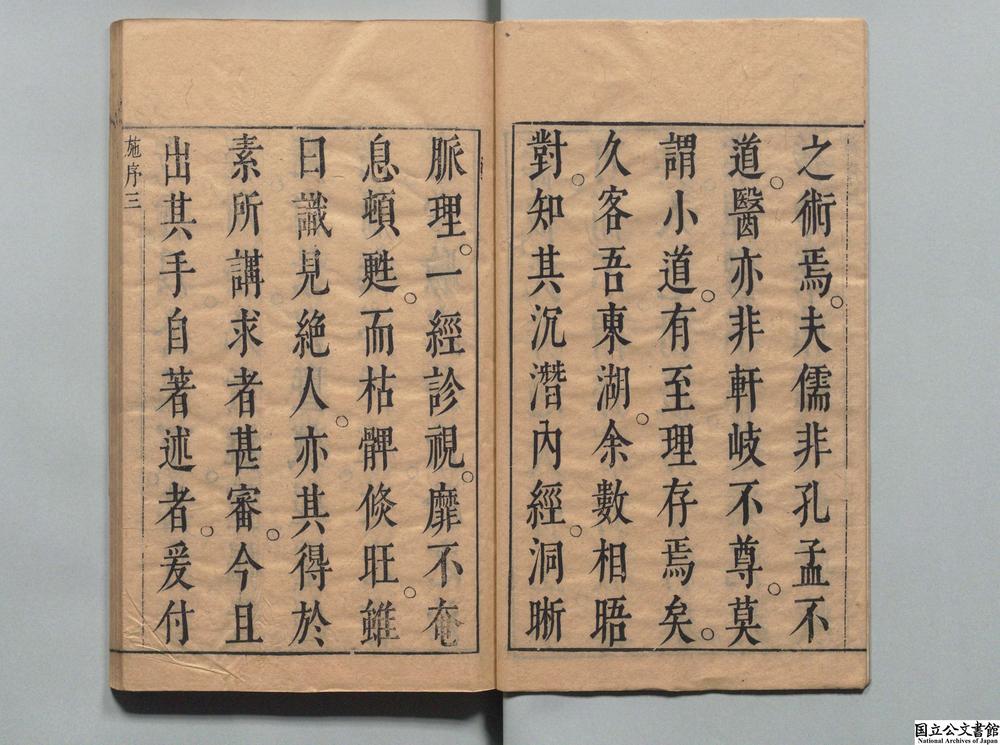 之術焉。夫儒非孔孟不
道。醫亦非軒岐不尊。莫
謂小道。有至理存焉矣。
久客吾東湖。余數相晤
對。知其沉潛內經。洞晰
脈理。一經診視。靡不奄
息頓甦。而枯髀倏旺。雖
曰識見絕人。亦其得於
素所講求者甚審。今且
出其手自著述者。爰付
施序三
国立公文書館
National Archives of Japan